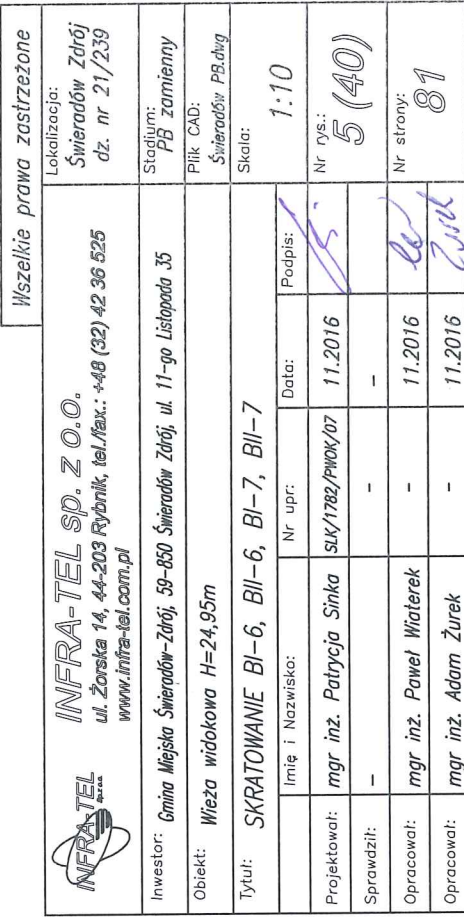 Wszelkie prawa zastrzeżone
INFRA-TEL
Sp. z o.o.
INFRA-TEL sp. z o.o.
ul. Żorska 14, 44-203 Rybnik, tel./fax.: +48 (32) 42 36 525
www.infra-tel.com.pl
Lokalizacja:
Świeradów Zdrój
dz. nr 21/239
Inwestor: Gmina Miejska Świeradów-Zdrój, 59-850 Świeradów Zdrój, ul. 11-go Listopada 35
Stadium:
PB zamienny
Obiekt: Wieża widokowa H=24,95m
Plik CAD:
Świeradów PB.dwg
Tytuł: SKRATOWANIE BI-6, BII-6, BI-7, BII-7
Skala:
1:10
Imię i Nazwisko: Nr upr: Data: Podpis:
Projektował: mgr inż. Patrycja Sinka SLK/1782/PWOK/07 11.2016
Nr rys.:
5 (40)
Sprawdził: - - -
Opracował: mgr inż. Paweł Wiaterek - 11.2016
Nr strony:
81
Opracował: mgr inż. Adam Żurek - 11.2016